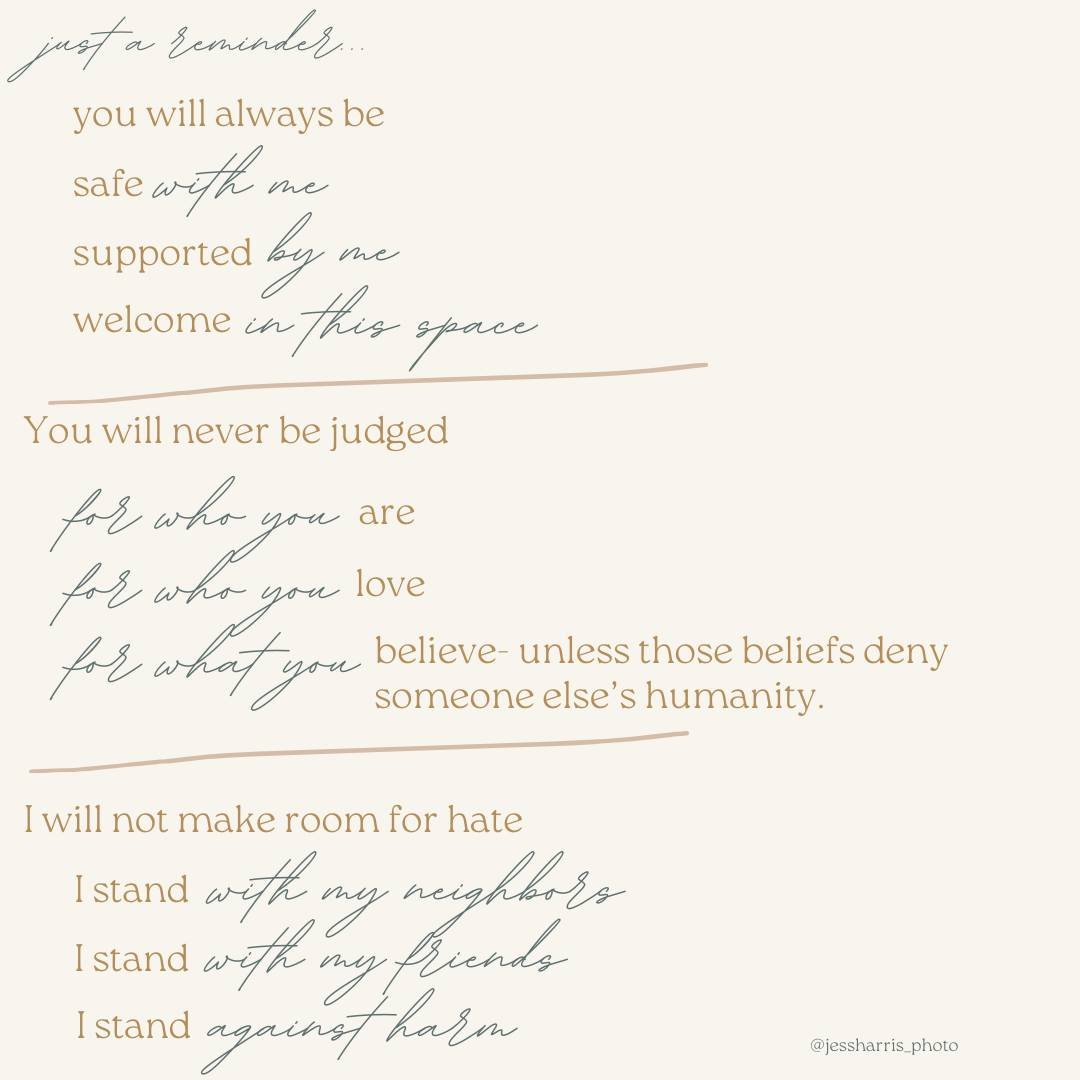 just a reminder...
you will always be
safe with me
supported by me
welcome in this space
You will never be judged
for who you are
for who you love
for what you believe- unless those beliefs deny
someone else's humanity.
I will not make room for hate
I stand with my neighbors
I stand with my friends
I stand against harm
@jessharris_photo